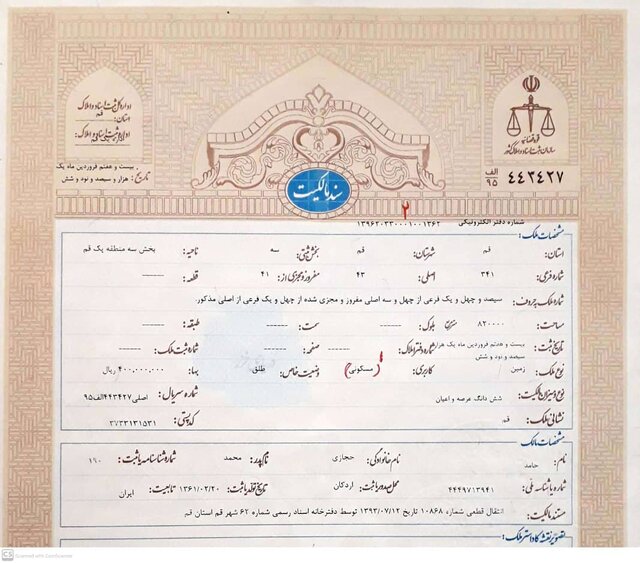 اداره کل ثبت اسناد و املاک
استان: قم
اداره ثبت اسناد و املاک:
اداره یک قم
بیست و هفتم فروردین ماه یک
تاریخ: هزار و سیصد و نود و شش
قوه قضائیه
سازمان ثبت اسناد و املاک کشور
الف
۹۵
۴۴۳۴۲۷
سند مالکیت
۲
شماره دفتر الکترونیکی ۱۳۹۶۲۰۳۳۰۰۰۱۰۰۱۳۶۲
مشخصات ملک:
استان: قم شهرستان: قم بخش ثبتی: سه ناحیه: بخش سه منطقه یک قم
شماره فرعی: ۳۴۱ اصلی: ۴۳ مفروز و مجزی از: ۴۱ قطعه: ------
شماره ملک به حروف: سیصد و چهل و یک فرعی از چهل و سه اصلی مفروز و مجزی شده از چهل و یک فرعی از اصلی مذکور.
مساحت: ۸۲۰۰۰۰ مترمربع بلوک: ------ سمت: ------ طبقه: ------
تاریخ ثبت: بیست و هفتم فروردین ماه یک هزار و سیصد و نود و شش شماره دفتر املاک: ------ صفحه: ------ شماره ثبت ملک: ------
نوع ملک: زمین کاربری: (مسکونی) وضعیت خاص: طلق بها: ۴۰۰.۰۰۰.۰۰۰ ریال
نوع و میزان مالکیت: شش دانگ عرصه و اعیان شماره سریال: اصلی۴۴۳۴۲۷الف۹۵
نشانی ملک: قم کد پستی: ۳۷۳۳۱۳۱۵۳۱
مشخصات مالک
نام: حامد نام خانوادگی: حجازی نام پدر: محمد شماره شناسنامه یا ثبت: ۱۹۰
شماره یا شناسه ملی: ۴۴۴۹۷۱۳۹۴۱ محل صدور یا ثبت: اردکان تاریخ تولد یا ثبت: ۱۳۶۱/۰۲/۲۰ تابعیت: ایران
مستند مالکیت: انتقال قطعی شماره ۱۰۸۶۸ تاریخ ۱۳۹۳/۰۷/۱۲ توسط دفترخانه اسناد رسمی شماره ۶۲ شهر قم استان قم
تصویر نقشه کاداستر ملک:
CS Scanned with CamScanner